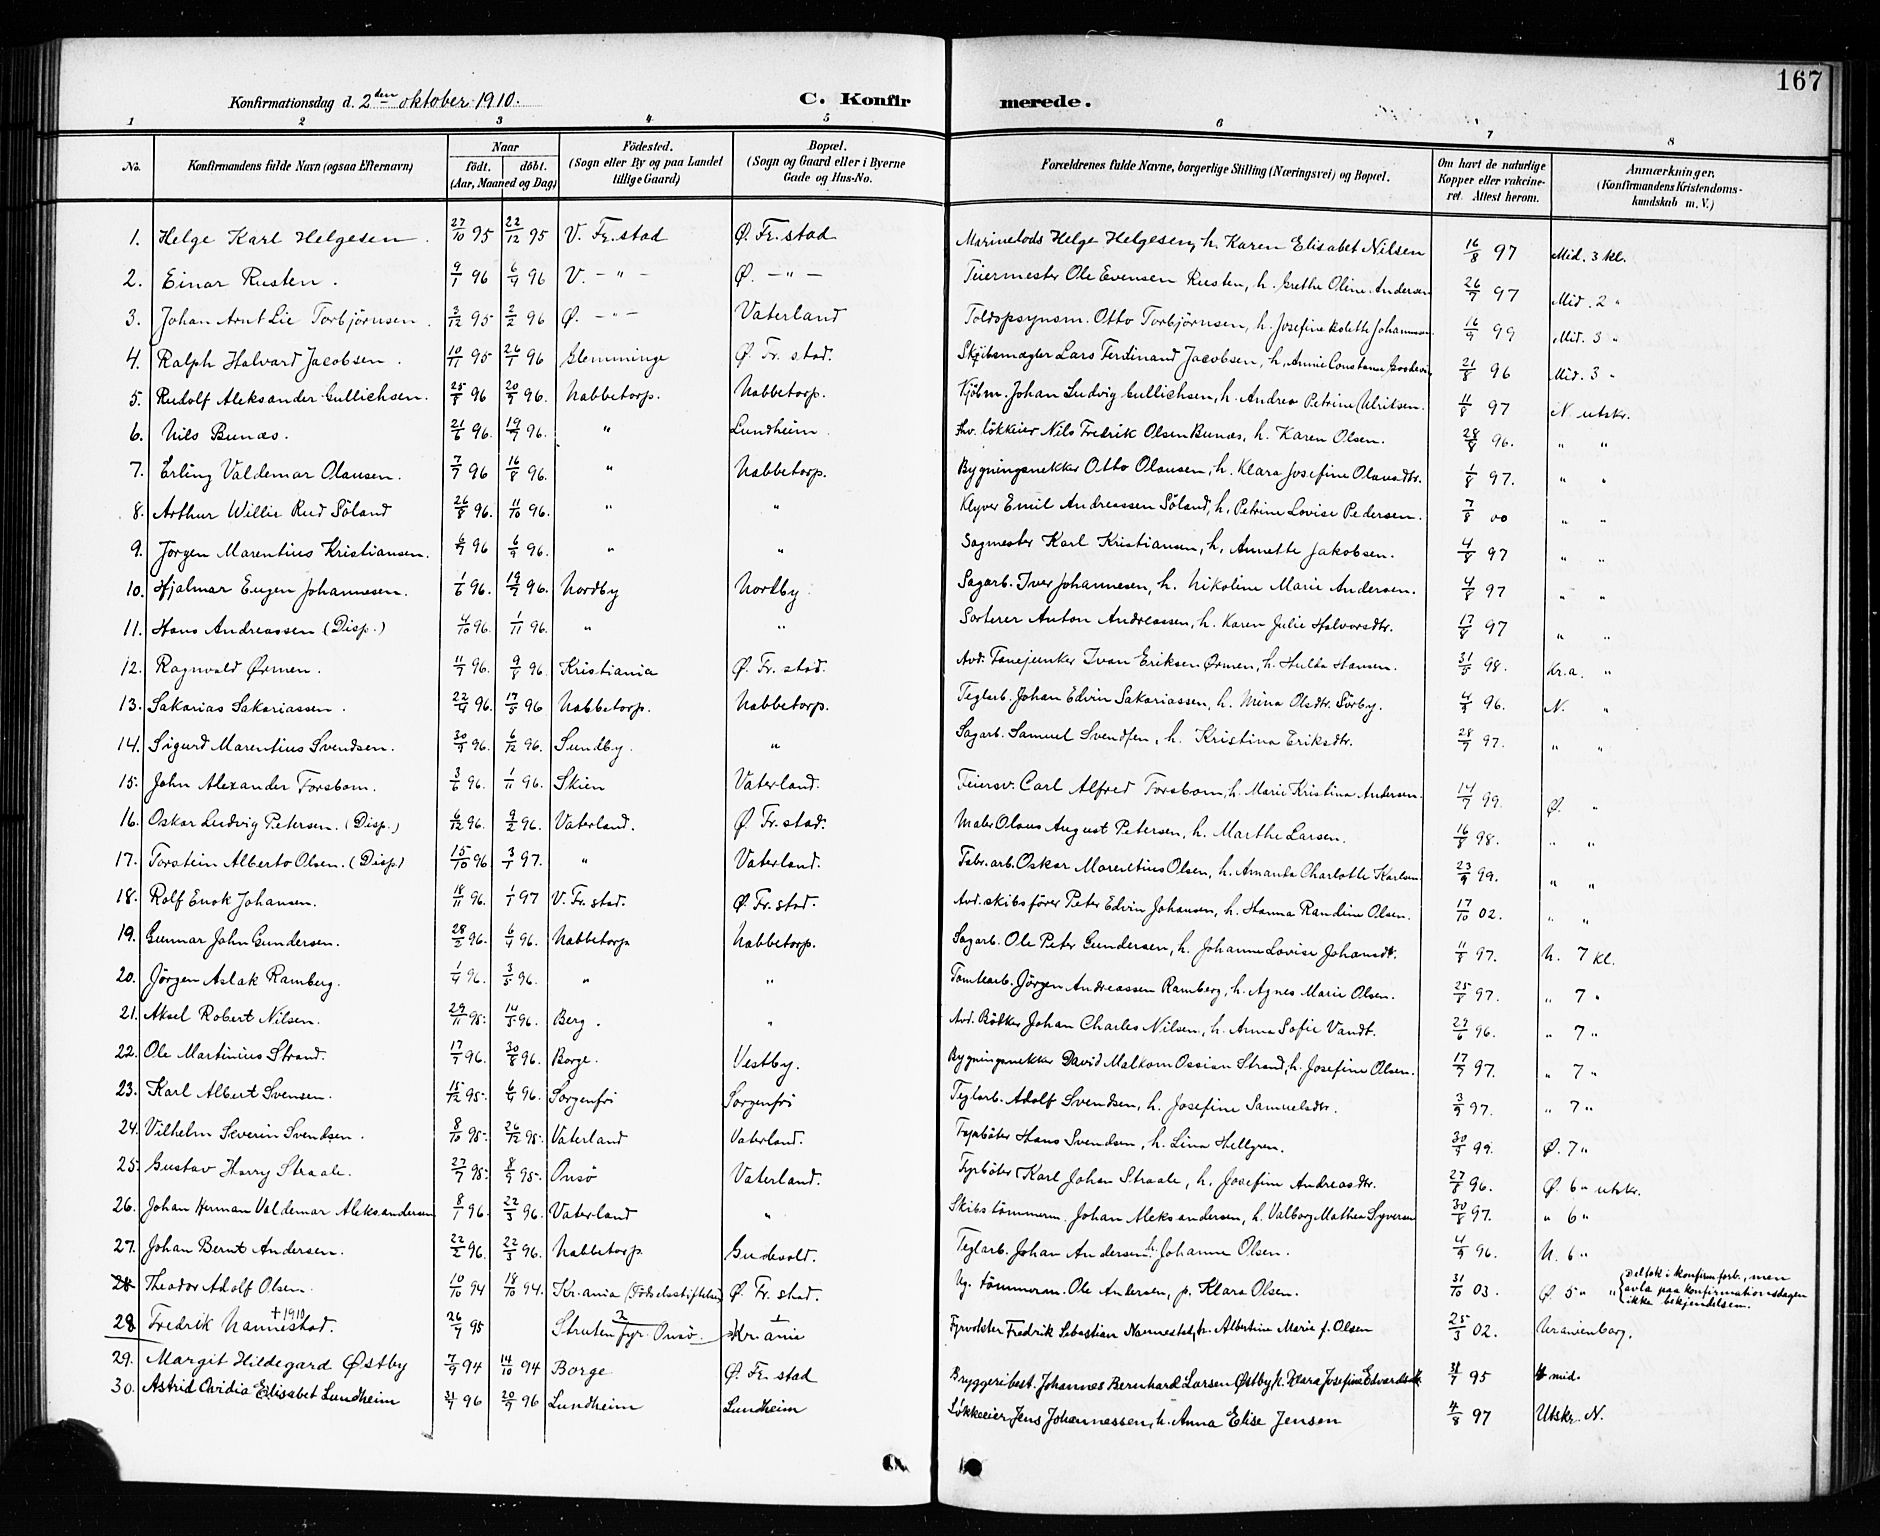 167
Konfirmationsdag d. 2den oktober 1910. C. Konfir merede.
1 2 3 4 5 6 7 8
No. Konfirmandens fulde Navn (ogsaa Efternavn) Naar födt. döbt. (Aar, Maaned og Dag) Födested. (Sogn eller By og paa Landet tillige Gaard) Bopæl. (Sogn og Gaard eller i Byerne Gade og Hus-No. Forældrenes fulde Navne, borgerlige Stilling (Næringsvei) og Bopæl. Om havt de naturlige Kopper eller vakcineret. Attest herom. Anmærkninger. (Konfirmandens Kristendomskundskab m. V.)
1. Helge Karl Helgesen. 27/10 95 22/12 95 V. Fr.stad Ø. Fr. stad Marinelods Helge Helgesen, h. Karen Elisabet Nilsen 16/8 97 Mid. 3 kl.
2. Einar Rusten. 9/1 96 6/4 96 V. - " - Ø. - " - Feiermester Ole Evensen Rusten, h. Grethe Oline Andersen 26/7 97 Mid. 2 "
3. Johan Arnt Lie Torbjörnsen. 3/12 95 2/2 96 Ø. - " - Vaterland Toldopsynsm. Otto Torbjörnsen, h. Josefine Kolette Johannessen. 16/9 99 Mid. 3 "
4. Ralph Halvard Jacobsen. 10/11 95 26/1 96 Glemminge Ø. Fr. stad. Skibsmægler Lars Ferdinand Jacobsen, h. Annie Constance 21/8 96 Mid. 3 "
5. Rudolf Aleksander Gullichsen. 25/8 96 20/9 96. Nabbetorp. Nabbetorp. Kjöbm. Johan Ludvig Gullichsen, h. Andrea Petrine Ulriksen. 11/8 97 N. utskr.
6. Nils Bunæs. 21/6 96. 19/7 96. " Lundheim. Fhv. lökkeier Nils Fredrik Olsen Bunæs, h. Karen Olsen. 28/8 96. " "
7. Erling Valdemar Olausen. 7/7 96 16/8 96. " Nabbetorp. Bygningsnekker Otto Olausen, h. Klara Josefine Olausdtr. 1/8 97. " "
8. Arthur Willie Rud Söland 26/8 96. 11/10 96. " " Klyver Emil Andreassen Söland, h. Petrine Lovise Pedersen. 7/8 00 " "
9. Jørgen Marentius Kristiansen. 6/7 96 6/9 96. " " Sagmester Karl Kristiansen, h. Annette Jakobsen. 4/8 97 " "
10. Hjalmar Eugen Johannesen. 1/6 96. 19/7 96. Nordby Nordby. Sagarb. Iver Johannesen, h. Nikoline Marie Andersen. 4/8 97 " "
11. Hans Andreassen (Disp.) 4/10 96. 1/11 96. " " Sorterer Anton Andreassen, h. Karen Julie Halvorsdtr. 17/8 97 " "
12. Ragnvald Ørmen. 11/7 96. 9/8 96 Kristiania Ø. Fr. stad. Avd. Fanejunker Ivan Eriksen Ørmen, h. Hulda Hansen. 31/5 98. Kr.a. "
13. Sakarias Sakariassen. 22/4 96. 17/5 96 Nabbetorp. Nabbetorp. Teglarb. Johan Edvin Sakariassen, h. Mina Olsdtr. Sörby. 4/9 96. N. "
14. Sigurd Marentius Svendsen. 30/9 96. 6/12 96. Sundby. " Sagarb. Samuel Svendsen, h. Kristina Eriksdtr. 28/7 97. " "
15. John Alexander Forsbom. 3/6 96. 1/11 96. Skien Vaterland. Feiersv. Carl Alfred Forsbom, h. Marie Kristina Andersen. 14/7 99. Ø. "
16. Oskar Ludvig Petersen. (Disp.) 6/12 96. 9/2 96. Vaterland. Ø. Fr. stad. Maler Olaus August Petersen, h. Marthe Larsen. 16/8 98. " "
17. Torstein Alberto Olsen. (Disp.) 15/10 96 3/1 97. " Vaterland. Fabr. arb. Oskar Marentius Olsen, h. Amanda Charlotte Karlsen 23/9 99. " "
18. Rolf Enok Johansen. 18/11 96. 1/1 97 V. Fr. stad. Ø. Fr. stad. Avd. skibsfører Peter Edvin Johansen, h. Hanna Randine Olsen. 17/10 02. " "
19. Gunnar John Gundersen. 28/2 96. 6/4 96. Nabbetorp Nabbetorp. Sagarb. Ole Peter Gundersen, h. Johanne Lovise Johansdtr. 11/8 97. N. 7 kl.
20. Jörgen Aslak Ramberg. 1/4 96. 3/5 96. " " Tomtearb. Jørgen Andreassen Ramberg, h. Agnes Marie Olsen. 25/8 97. " 7 "
21. Aksel Robert Nilsen. 29/11 95. 14/5 96. Berg. " Avd. Bötker Johan Charles Nilsen, h. Anna Sofie Vandt. 29/6 96. " 7 "
22. Ole Martinius Strand. 17/7 96. 30/8 96. Borge. Vestby. Bygningsnekker David Malkom Ossian Strand, h. Josefine Olsen. 17/7 97. " 7 "
23. Karl Albert Svensen. 15/12 95. 6/4 96. Sorgenfri Sorgenfri Teglarb. Adolf Svendsen, h. Josefine Samuelsdtr. 3/9 97. " 7 "
24. Vilhelm Severin Svendsen. 8/10 95. 26/12 95. Vaterland Vaterland. Fyrböter Hans Svendsen, h. Lina Hellgren. 30/5 99. Ø. 7 "
25. Gustav Harry Straale. 27/7 95. 8/9 95. Onsö Vaterland. Fyrböter Karl Johan Straale, h. Josefine Andreasdtr. 27/8 96. Ø. 6 " utskr.
26. Johan Herman Valdemar Aleksandersen 8/1 96. 22/3 96. Vaterland " Skibstömmerm. Johan Aleksandersen, h. Valborg Mathea Syversen 30/8 97. " 6 "
27. Johan Bernt Andersen. 22/2 96. 22/3 96. Nabbetorp Gudevold. Teglarb. Johan Andersen h. Johanne Olsen. 4/9 96. N. 6 "
28 Theodor Adolf Olsen. 10/10 94 18/10 94. Kr.ania (Födselsstiftelsen) Ø. Fr. stad. Ug. tömmerm. Ole Andersen, p. Klara Olsen. 31/10 03. Ø 5 " " Deltok i konfirm.forb., men avla paa konfirmationsdagen ikke bekjendelsen.
28 Fredrik Nannestad. +1910 26/7 95 Struten fyr Onsø. Kr.ania Fyrvokter Fredrik Sebastian Nannestad, h. Albertine Marie f. Olsen 25/3 02. Uranienborg.
29. Margit Hildegard Østby 7/9 94 14/10 94 Borge Ø. Fr. stad Bryggeribest. Johannes Bernhard Larsen Østby, h. Klara Josefine Edvardsdtr. 31/7 95 mid.
30. Astrid Ovidia Elisabet Lundheim 31/7 96 20/9 96 Lundheim Lundheim Løkkeeier Jens Johannessen, h. Anna Elise Jensen 4/8 97 Utskr. N.